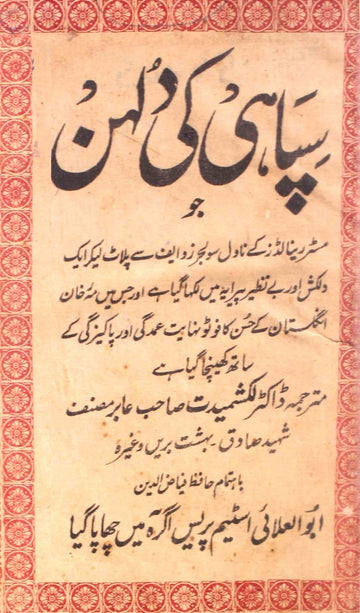 سپاہی کی دلہن
جو
مسٹر رینالڈز کے ناول سولجرز وائف سے پلاٹ لیکر ایک
دلکش اور بے نظیر پیرایہ میں لکھا گیا ہے اور جس میں مہ رخان
انگلستان کے حسن کا فوٹو نہایت عمدگی اور پاکیزگی کے
ساتھ کھینچا گیا ہے
مترجمہ ڈاکٹر لکشمیدت صاحب عابر مصنف
شہید صادق۔ بہشت بریں وغیرہ
باہتمام حافظ فیاض الدین
ابوالعلائی اسٹیم پریس آگرہ میں چھاپا گیا